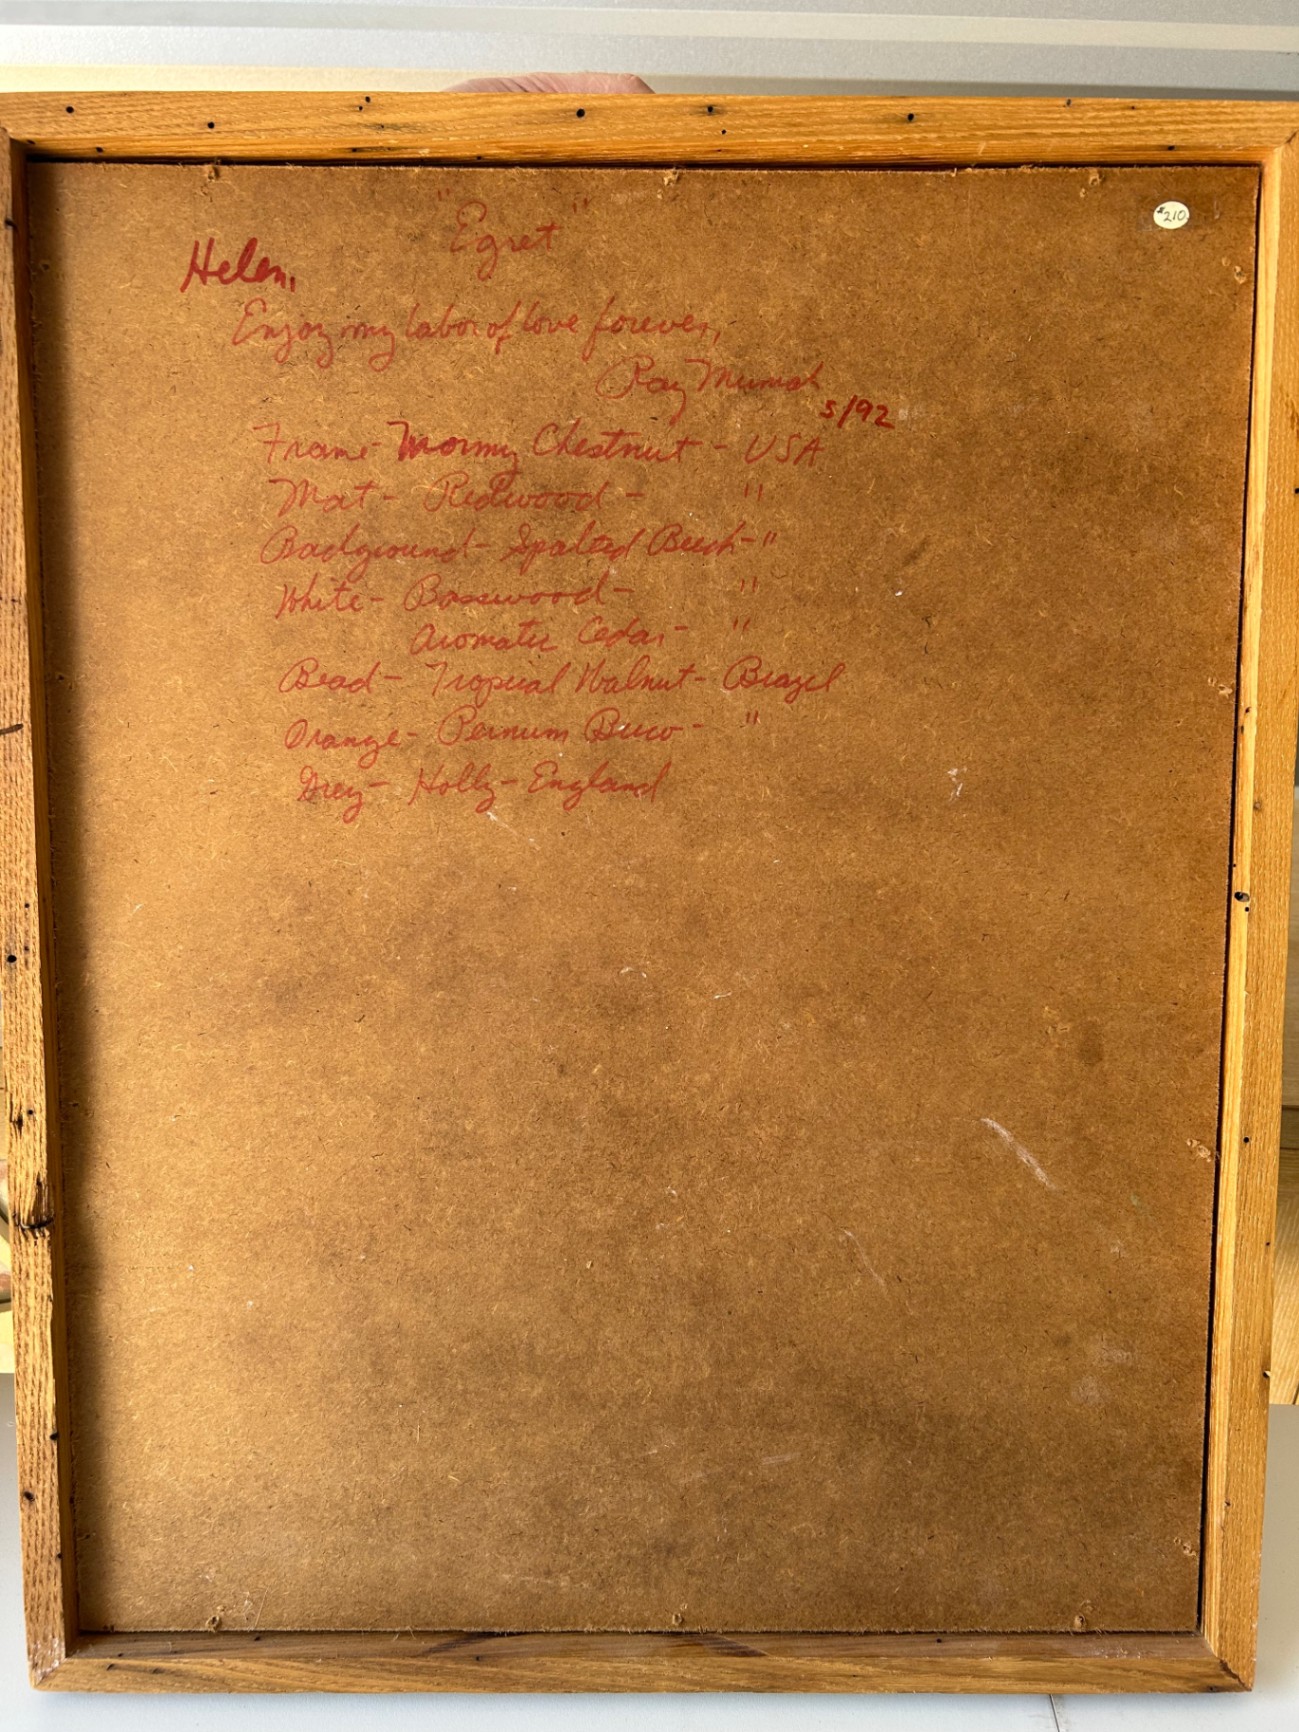 "Egret"
$210
Helen,
Enjoy my labor of love forever,
Ray
5/92
Frame - Wormy Chestnut - USA
Mat - Redwood - "
Background - Spalted Beech - "
White - Basswood - "
Aromatic Cedar - "
Bead - Tropical Walnut - Brazil
Orange - Pernum Buco - "
Grey - Holly - England